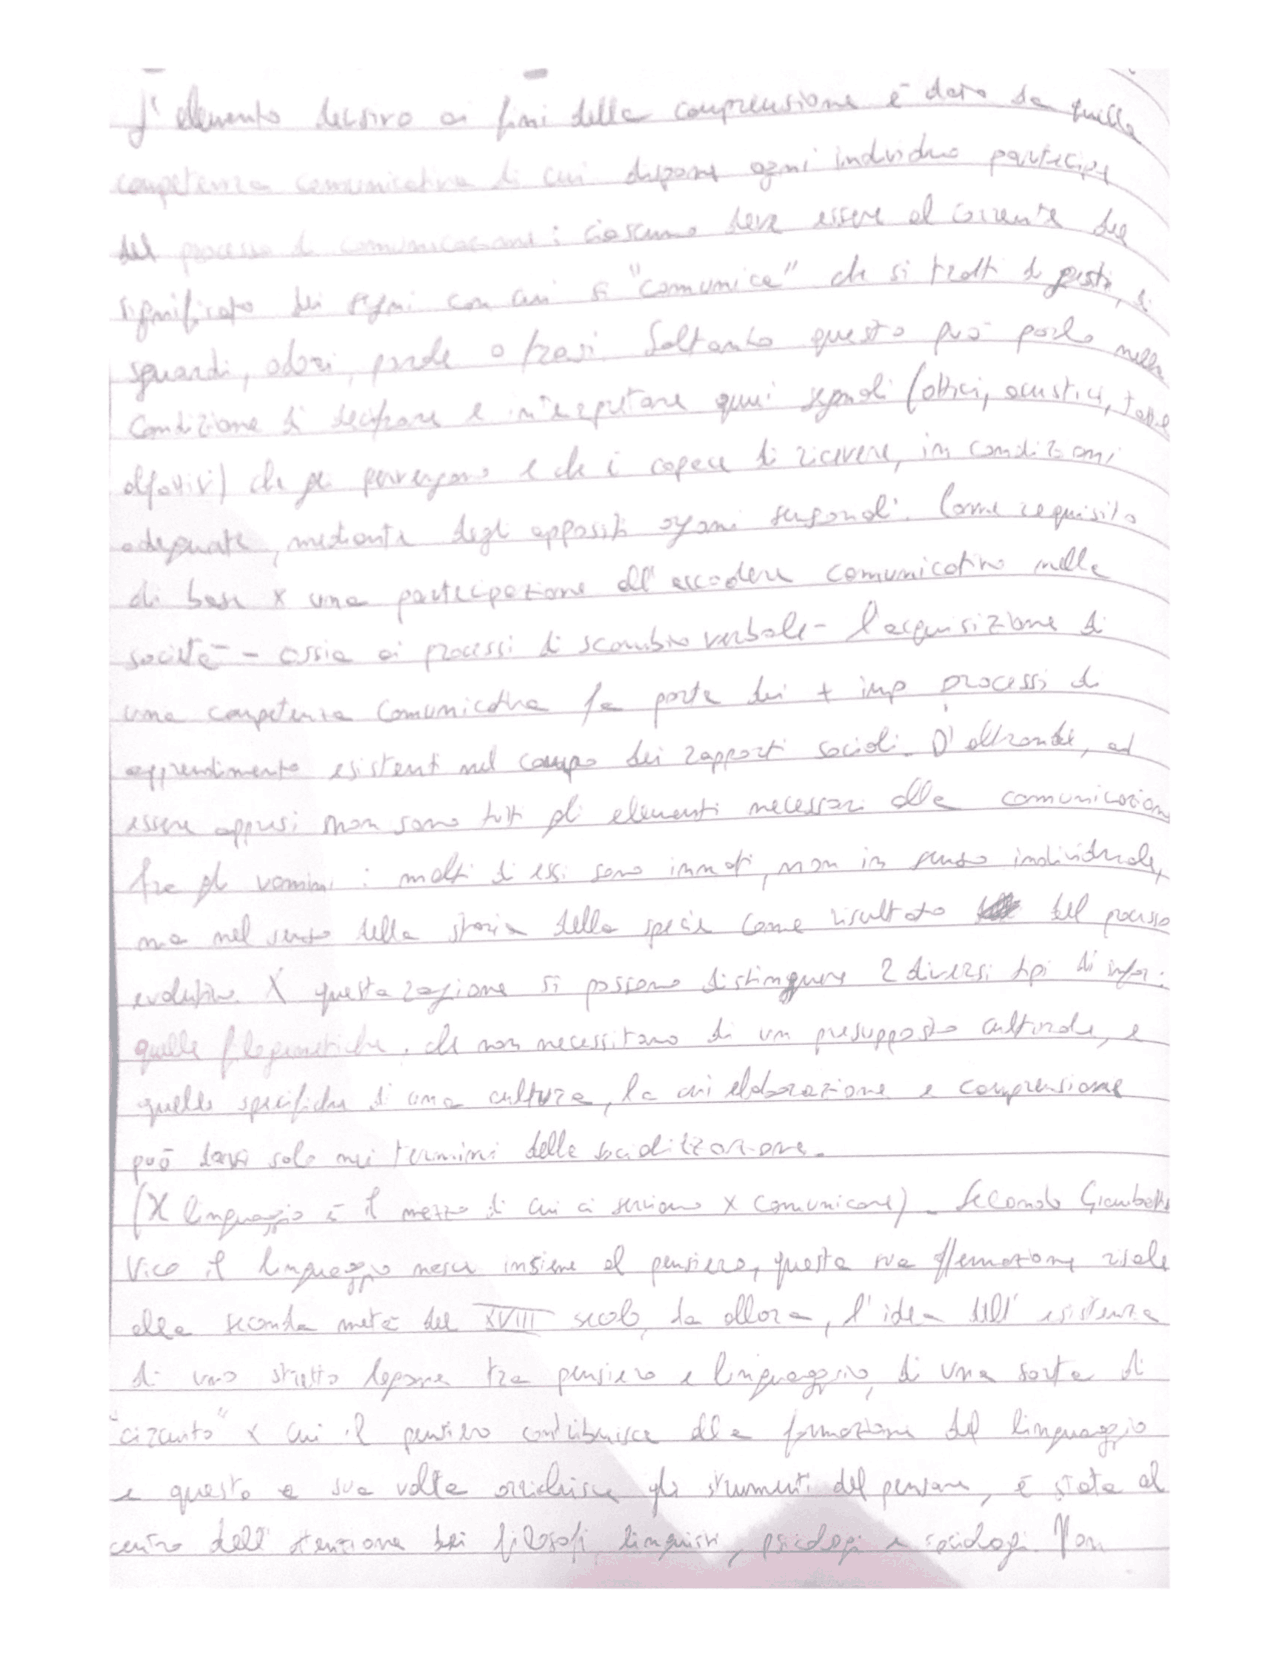 L'elemento decisivo ai fini della comprensione è dato da quella
competenza comunicativa di cui dispone ogni individuo partecipe
del processo di comunicazione: ciascuno deve essere al corrente del
significato dei segni con cui si "comunica" che si tratti di gesti, di
sguardi, odori, parole o frasi. Soltanto questo può porlo nella
condizione di decifrare e interpretare quei segnali (ottici, acustici,
olfattivi) che gli pervengono e che è capace di ricevere, in condizioni
adeguate, mediante degli appositi organi sensoriali. Come requisito
di base x una partecipazione all'accadere comunicativo nella
società - ossia ai processi di scambio verbale - l'acquisizione di
una competenza comunicativa fa parte dei + imp processi di
apprendimento esistenti nel campo dei rapporti sociali. D'altronde, ad
essere appresi non sono tutti gli elementi necessari alla comunicazione
fra gli uomini: molti di essi sono innati, non in senso individuale,
ma nel senso della storia della specie come risultato del processo
evolutivo. X questa ragione si possono distinguere 2 diversi tipi di infor.
quelle filogenetiche, che non necessitano di un presupposto culturale, e
quelle specifiche di una cultura, la cui elaborazione e comprensione
può darsi solo nei termini della socializzazione.
(Il linguaggio è il mezzo di cui ci serviamo x comunicare). Secondo Giambattista
Vico il linguaggio nasce insieme al pensiero, questa sua affermazione risale
alla seconda metà del XVIII secolo, da allora, l'idea dell'esistenza
di uno stretto legame tra pensiero e linguaggio, di una sorta di
"circuito" x cui il pensiero contribuisce alla formazione del linguaggio
e questo a sua volta arricchisce gli strumenti del pensare, è stata al
centro dell'attenzione dei filosofi, linguisti, psicologi e sociologi. Non